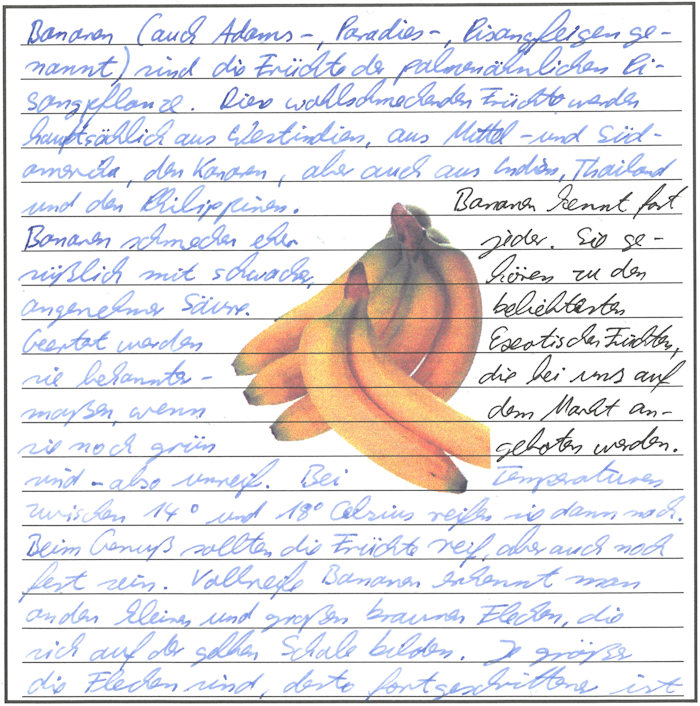 Bananen (auch Adams-, Paradies-, Pisangfeigen ge-
nannt) sind die Früchte der palmenähnlichen Pi-
sangpflanze. Diese wohlschmeckenden Früchte werden
hauptsächlich aus Westindien, aus Mittel- und Süd-
amerika, den Kanaren, aber auch aus Indien, Thailand
und den Philippinen.
Bananen schmecken eher
süßlich mit schwacher,
angenehmer Säure.
Geerntet werden
sie bekannter-
maßen, wenn
sie noch grün
sind - also unreif. Bei Temperaturen
zwischen 14° und 18° Celsius reifen sie dann nach.
Beim Genuß sollten die Früchte reif, aber auch noch
fest sein. Vollreife Bananen erkennt man
an den kleinen und großen braunen Flecken, die
sich auf der gelben Schale bilden. Je größer
die Flecken sind, desto fortgeschrittener ist
Bananen kennt fast
jeder. Sie ge-
hören zu den
beliebtesten
Exotischen Früchten,
die bei uns auf
dem Markt an-
geboten werden.